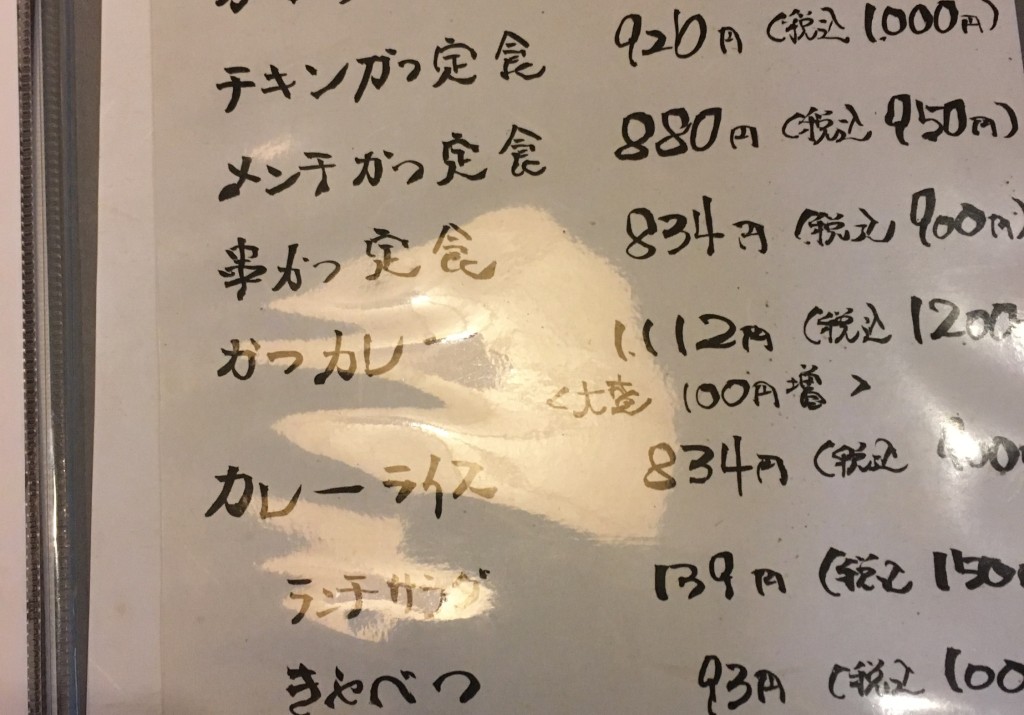 チキンかつ定食 920円 (税込 1.000円)
メンチかつ定食 880円 (税込 950円)
串かつ定食 834円 (税込 900円)
かつカレー 1.112円 (税込 1200
<大盛 100円増>
カレーライス 834円 (税込 900
ランチサラダ 139円 (税込 150
きゃべつ 93円 (税込 100